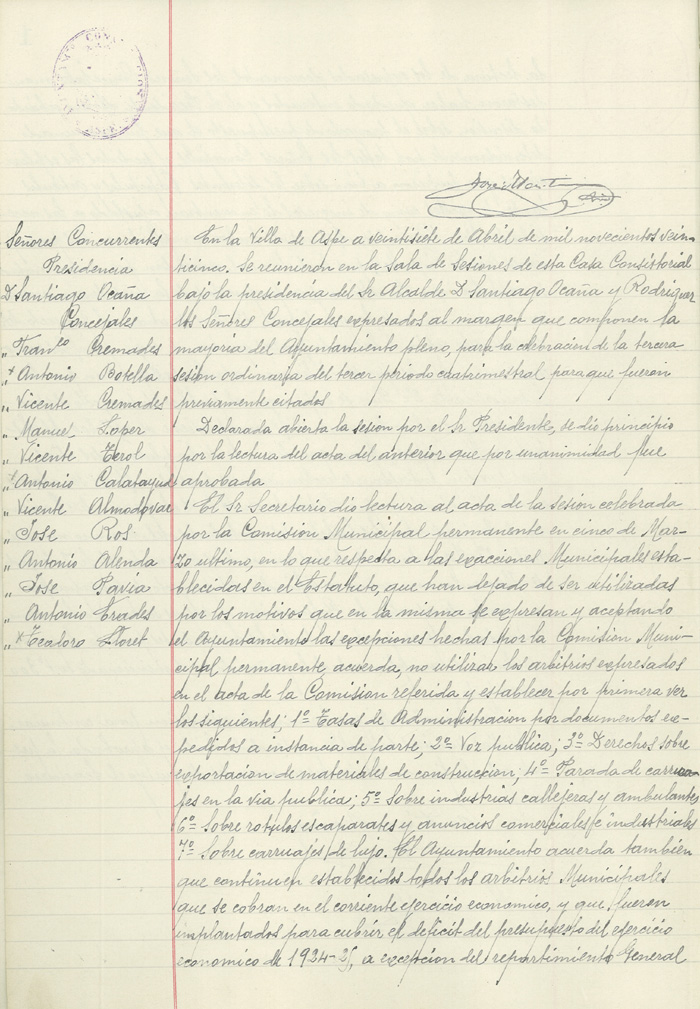 Señores Concurrentes
Presidencia
D Santiago Ocaña
Concejales
„ Franco Cremades
„ Antonio Botella
„ Vicente Cremades
„ Manuel Loper
„ Vicente Terol
„ Antonio Calatayud
„ Vicente Almodovar
„ Jose Ros
„ Antonio Alenda
„ Jose Pavia
„ Antonio Erades
„ Teodoro Lloret
En la Villa de Aspe a veintisiete de Abril de mil novecientos vein-
ticinco. Se reunieron en la Sala de Sesiones de esta Casa Consistorial
bajo la presidencia del Sr Alcalde D Santiago Ocaña y Rodriguez
los Señores Concejales expresados al margen que componen la
mayoria del Ayuntamiento pleno, para la celebracion de la tercera
sesion ordinaria del tercer periodo cuatrimestral para que fueron
previamente citados
Declarada abierta la sesion por el Sr Presidente, se dio principio
por la lectura del acta del anterior que por unanimidad fue
aprobada
El Sr Secretario dio lectura al acta de la sesion celebrada
por la Comision Municipal permanente en cinco de Mar-
zo ultimo, en lo que respecta a las exacciones Municipales esta-
blecidas en el Estatuto, que han dejado de ser utilizadas
por los motivos que en la misma se expresan y aceptando
el Ayuntamiento las excepciones hechas por la Comision Muni-
cipal permanente, acuerda, no utilizar los arbitrios expresados
en el acta de la Comision referida y establecer por primera ver
los siguientes; 1º Tasas de Administracion por documentos ex-
pedidos a instancia de parte; 2º Voz publica; 3º Derechos sobre
exportacion de materiales de construccion; 4º Parada de carrua-
jes en la via publica; 5º Sobre industrias callejeras y ambulantes
6º Sobre rotulos escaparates y anuncios comerciales e industriales
7º Sobre carruajes de lujo. El Ayuntamiento acuerda tambien
que continuen establecidos todos los arbitrios Municipales
que se cobran en el corriente ejercicio economico, y que fueron
implantados para cubrir el deficit del presupuesto del ejercicio
economico de 1924-25, a excepcion del repartimiento General